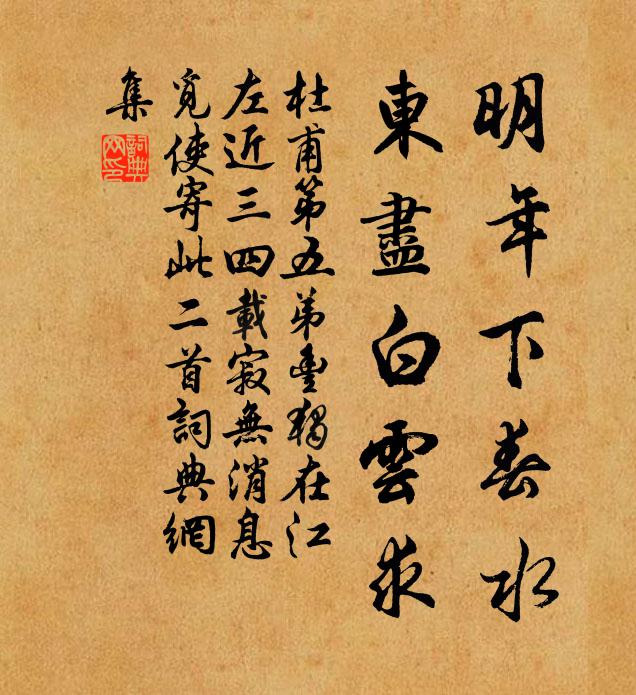 明年下春水
東盡白雲求
杜甫第五弟豐獨在江
左近三四載寂無消息
覓使寄此二首詞典網
集
詞典
网印